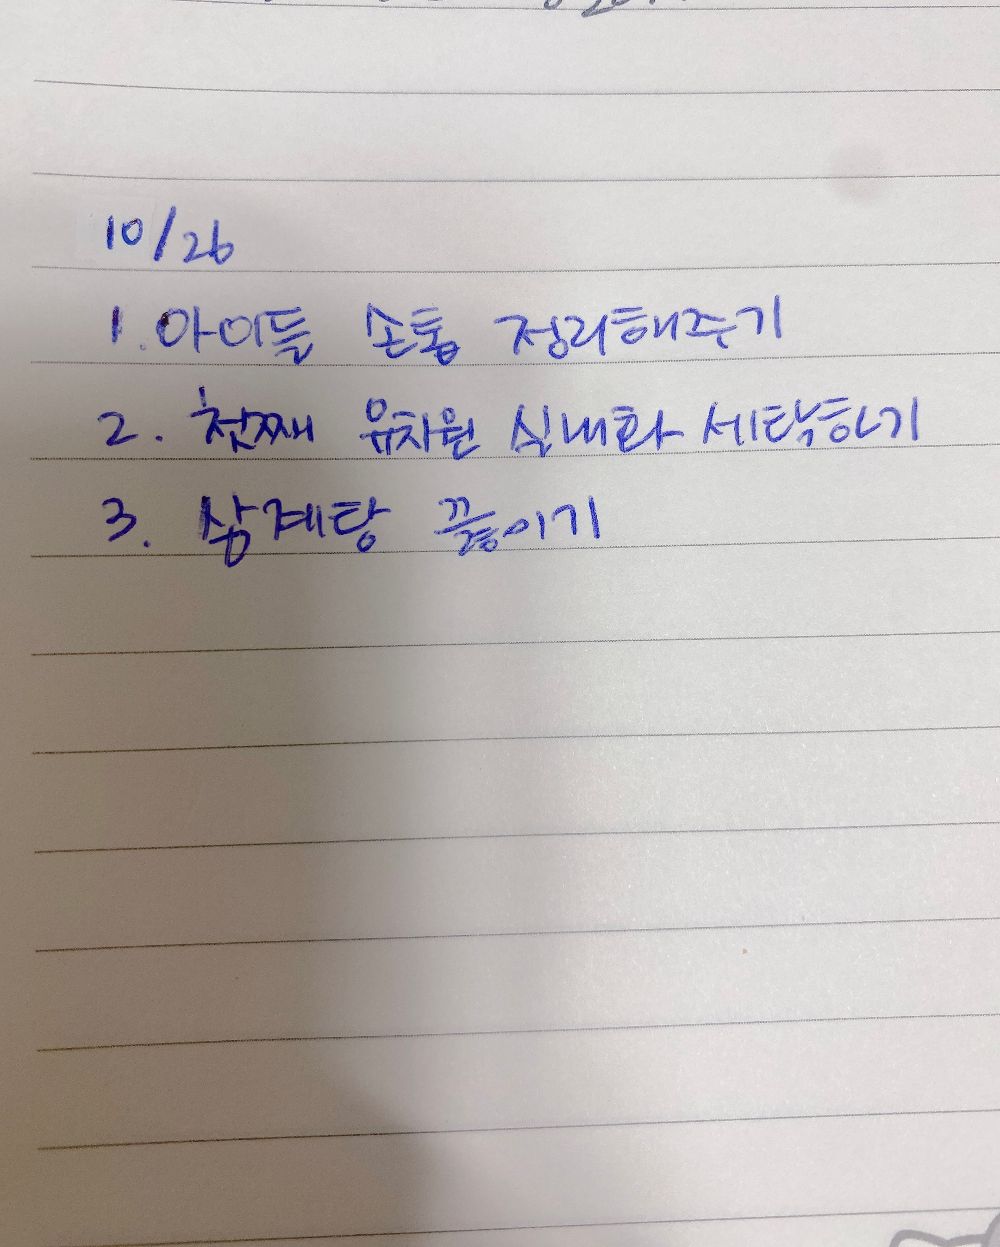 10/26
1. 아이들 손톱 정리해주기
2. 첫째 유치원 실내화 세탁하기
3. 삼계탕 끓이기